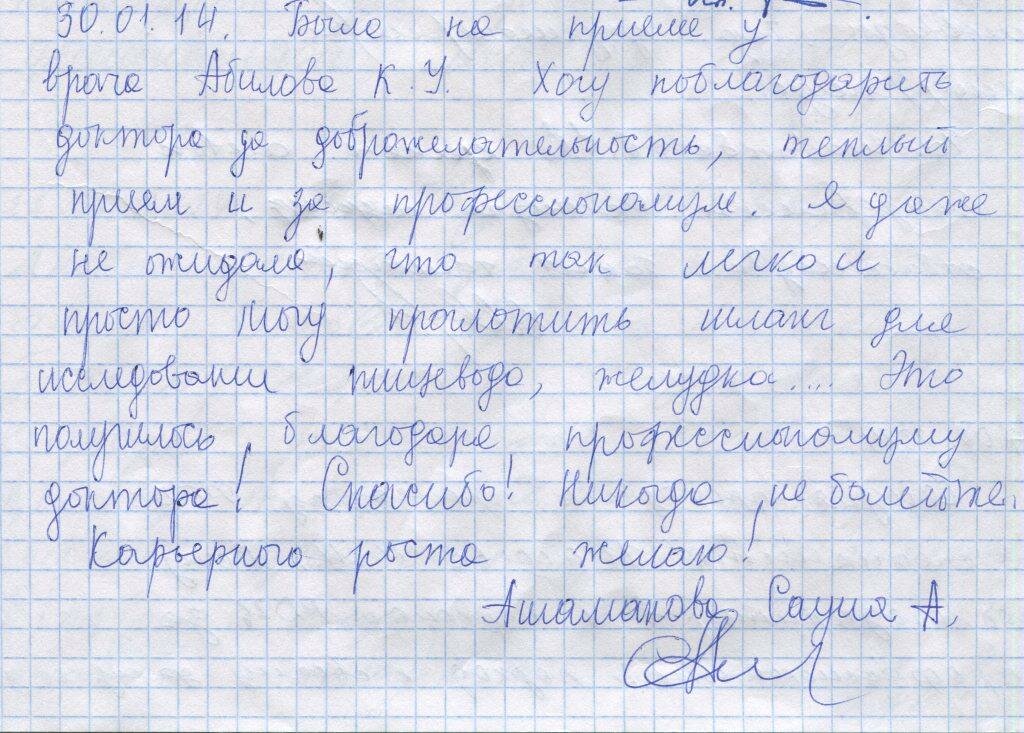 30.01.14. Была на приеме у
врача Абилова К.У. Хочу поблагодарить
доктора за доброжелательность, теплый
прием и за профессионализм. Я даже
не ожидала, что так легко и
просто могу проглотить шланг для
исследования пищевода, желудка.... Это
получилось, благодаря профессионализму
доктора! Спасибо! Никогда не болейте.
Карьерного роста желаю!
Ашаманова Сауия А.